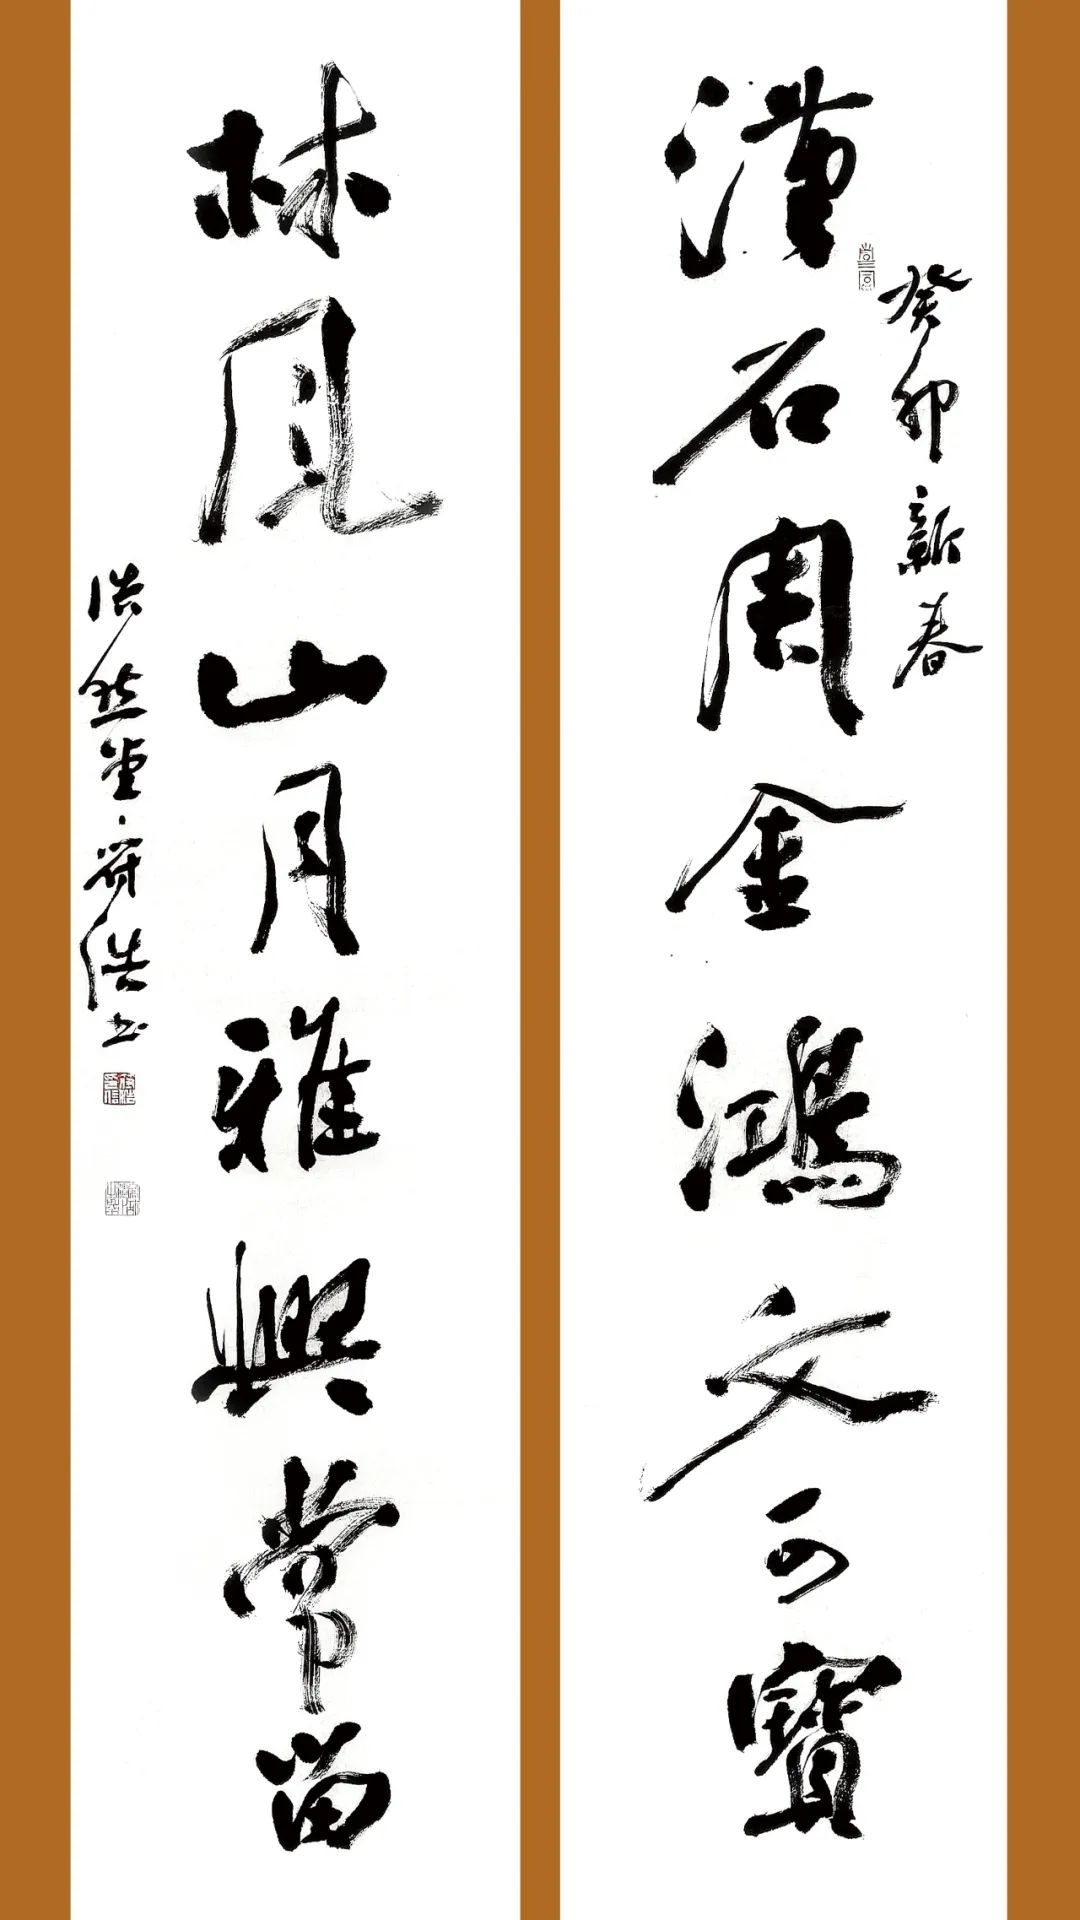 癸卯新春
漢石周金鴻文可寶
林風山月雅興常留
浩然堂符浩書